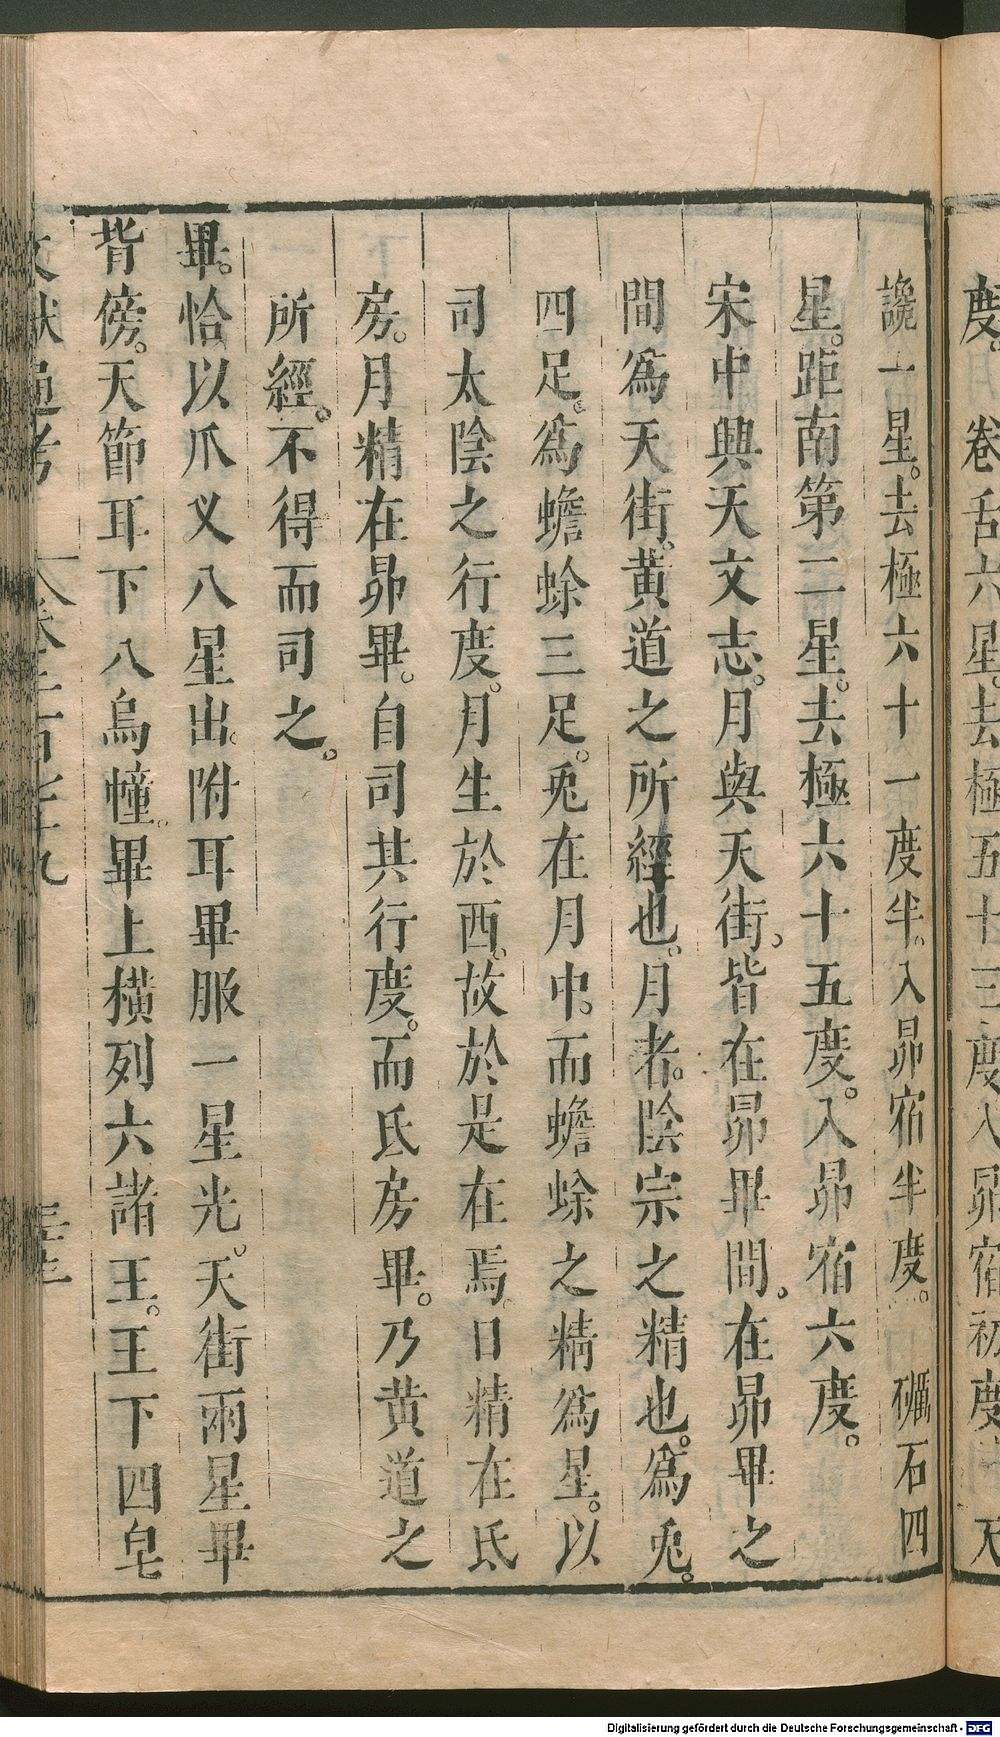 度。卷舌六星。去極五十三度。入昴宿初度。天
讒一星。去極六十一度半。入昴宿半度。礪石四
星。距南第二星。去極六十五度。入昴宿六度。
宋中興天文志。月與天街。皆在昴畢間。在昴畢之
間爲天街。黄道之所經也。月者。陰宗之精也。爲兎。
四足。爲蟾蜍三足。兎在月中。而蟾蜍之精爲星。以
司太陰之行度。月生於西。故於是在焉。日精在氐
房。月精在昴畢。自司其行度。而氐房畢。乃黄道之
所經。不得而司之。
畢。恰以爪义八星出。附耳畢服一星光。天街兩星畢
背傍。天節耳下八烏幢。畢上横列六諸王。王下四皂
文獻通考 卷二百七十九
Digitalisierung gefördert durch die Deutsche Forschungsgemeinschaft - DFG